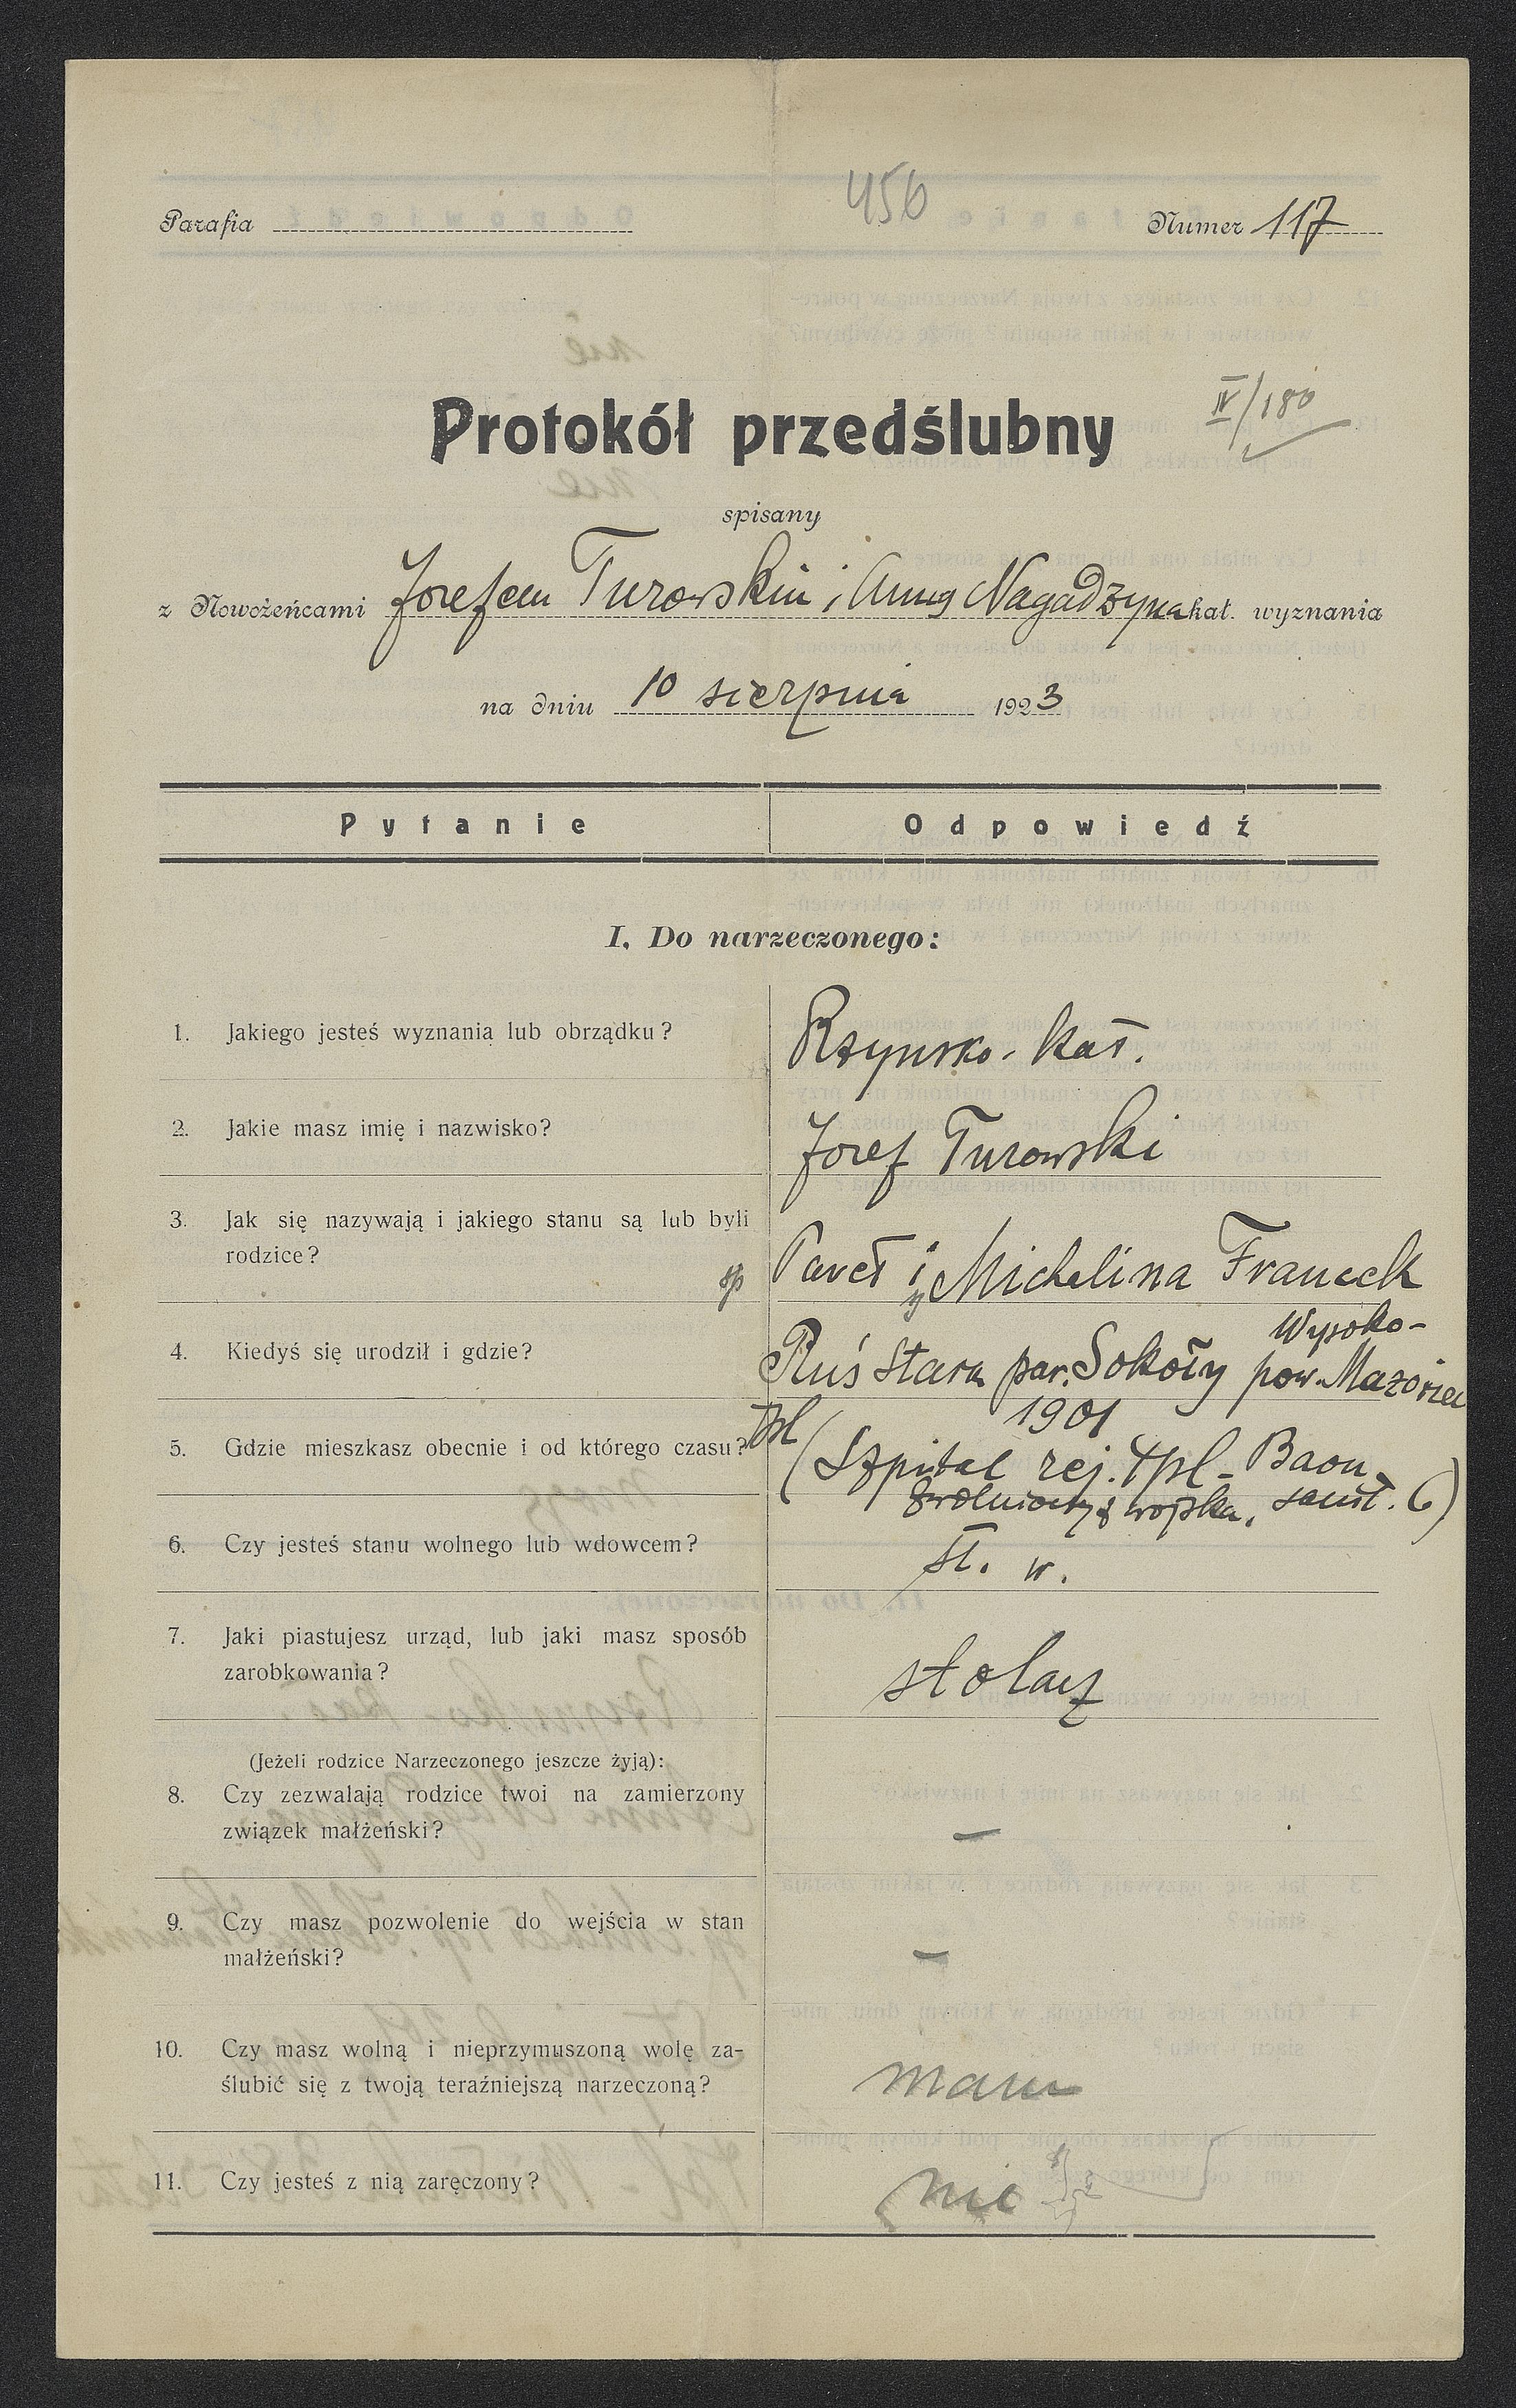 456
Parafia Numer 117
Protokół przedślubny
IV/180
spisany
z Nowożeńcami Jozefem Turowskim i Anną Nagadzyna kat. wyznania
na dniu 10 sierpnia 1923
Pytanie Odpowiedź
I. Do narzeczonego:
1. Jakiego jesteś wyznania lub obrządku? Rzymsko-kat.
2. Jakie masz imię i nazwisko? Jozef Turowski
3. Jak się nazywają i jakiego stanu są lub byli
rodzice? sp Paveł i Michelina Franeck
4. Kiedyś się urodził i gdzie? Ruś Stara par. Sokoły pow. Wysoko-Mazowiec
1901
5. Gdzie mieszkasz obecnie i od którego czasu? Tpl (Szpital rej. Tpl - Baon
zwolniony z wojska. sanit. 6)
6. Czy jesteś stanu wolnego lub wdowcem? st. w.
7. Jaki piastujesz urząd, lub jaki masz sposób
zarobkowania? stolarz
(Jeżeli rodzice Narzeczonego jeszcze żyją):
8. Czy zezwalają rodzice twoi na zamierzony
związek małżeński? —
9. Czy masz pozwolenie do wejścia w stan
małżeński? —
10. Czy masz wolną i nieprzymuszoną wolę za-
ślubić się z twoją teraźniejszą narzeczoną? mam
11. Czy jesteś z nią zaręczony? nie